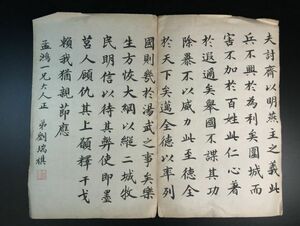 夫討齊以明燕主之義此
兵不興於為利矣圍城而
害不加於百姓此仁心著
於遐邇矣舉國不謀其功
除暴不以威力此至德全
於天下矣邁全德以率列
國則幾於湯武之事矣樂
生方恢大綱以縱二城牧
民明信以待其弊使即墨
莒人顧仇其上願釋干戈
賴我猶親節應
孟鴻一兄大人正 弟劉瑞棋